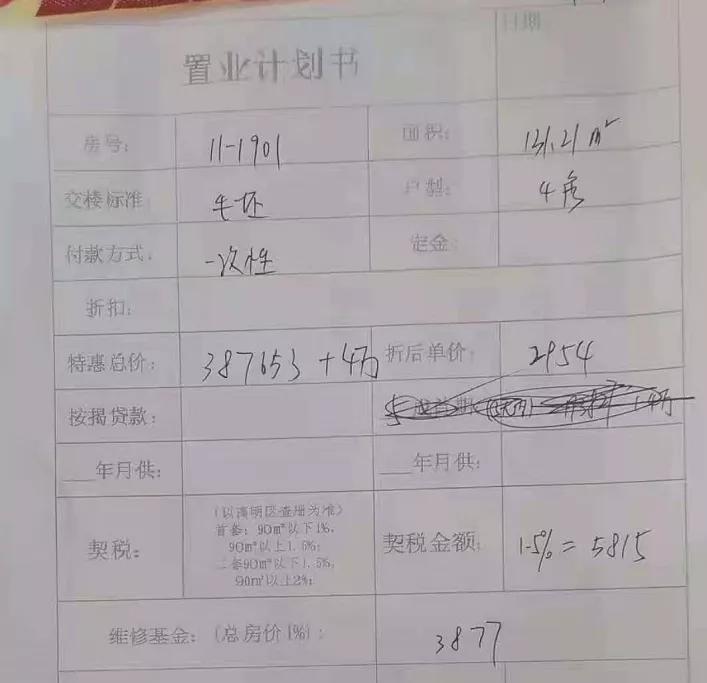 置业计划书
日期
房号： 11-1901 面积： 131.21m²
交楼标准： 毛坯 户型： 4房
付款方式： 一次性 定金：
折扣：
特惠总价： 387653 +4万 折后单价： 2954
按揭贷款：
___年月供： ___年月供：
契税：
(以高明区查册为准)
首套：90m²以下1%，
90m²以上1.5%；
二套90m²以下1.5%，
90m²以上2%；
契税金额： 1.5% = 5815
维修基金：(总房价1%)： 3877